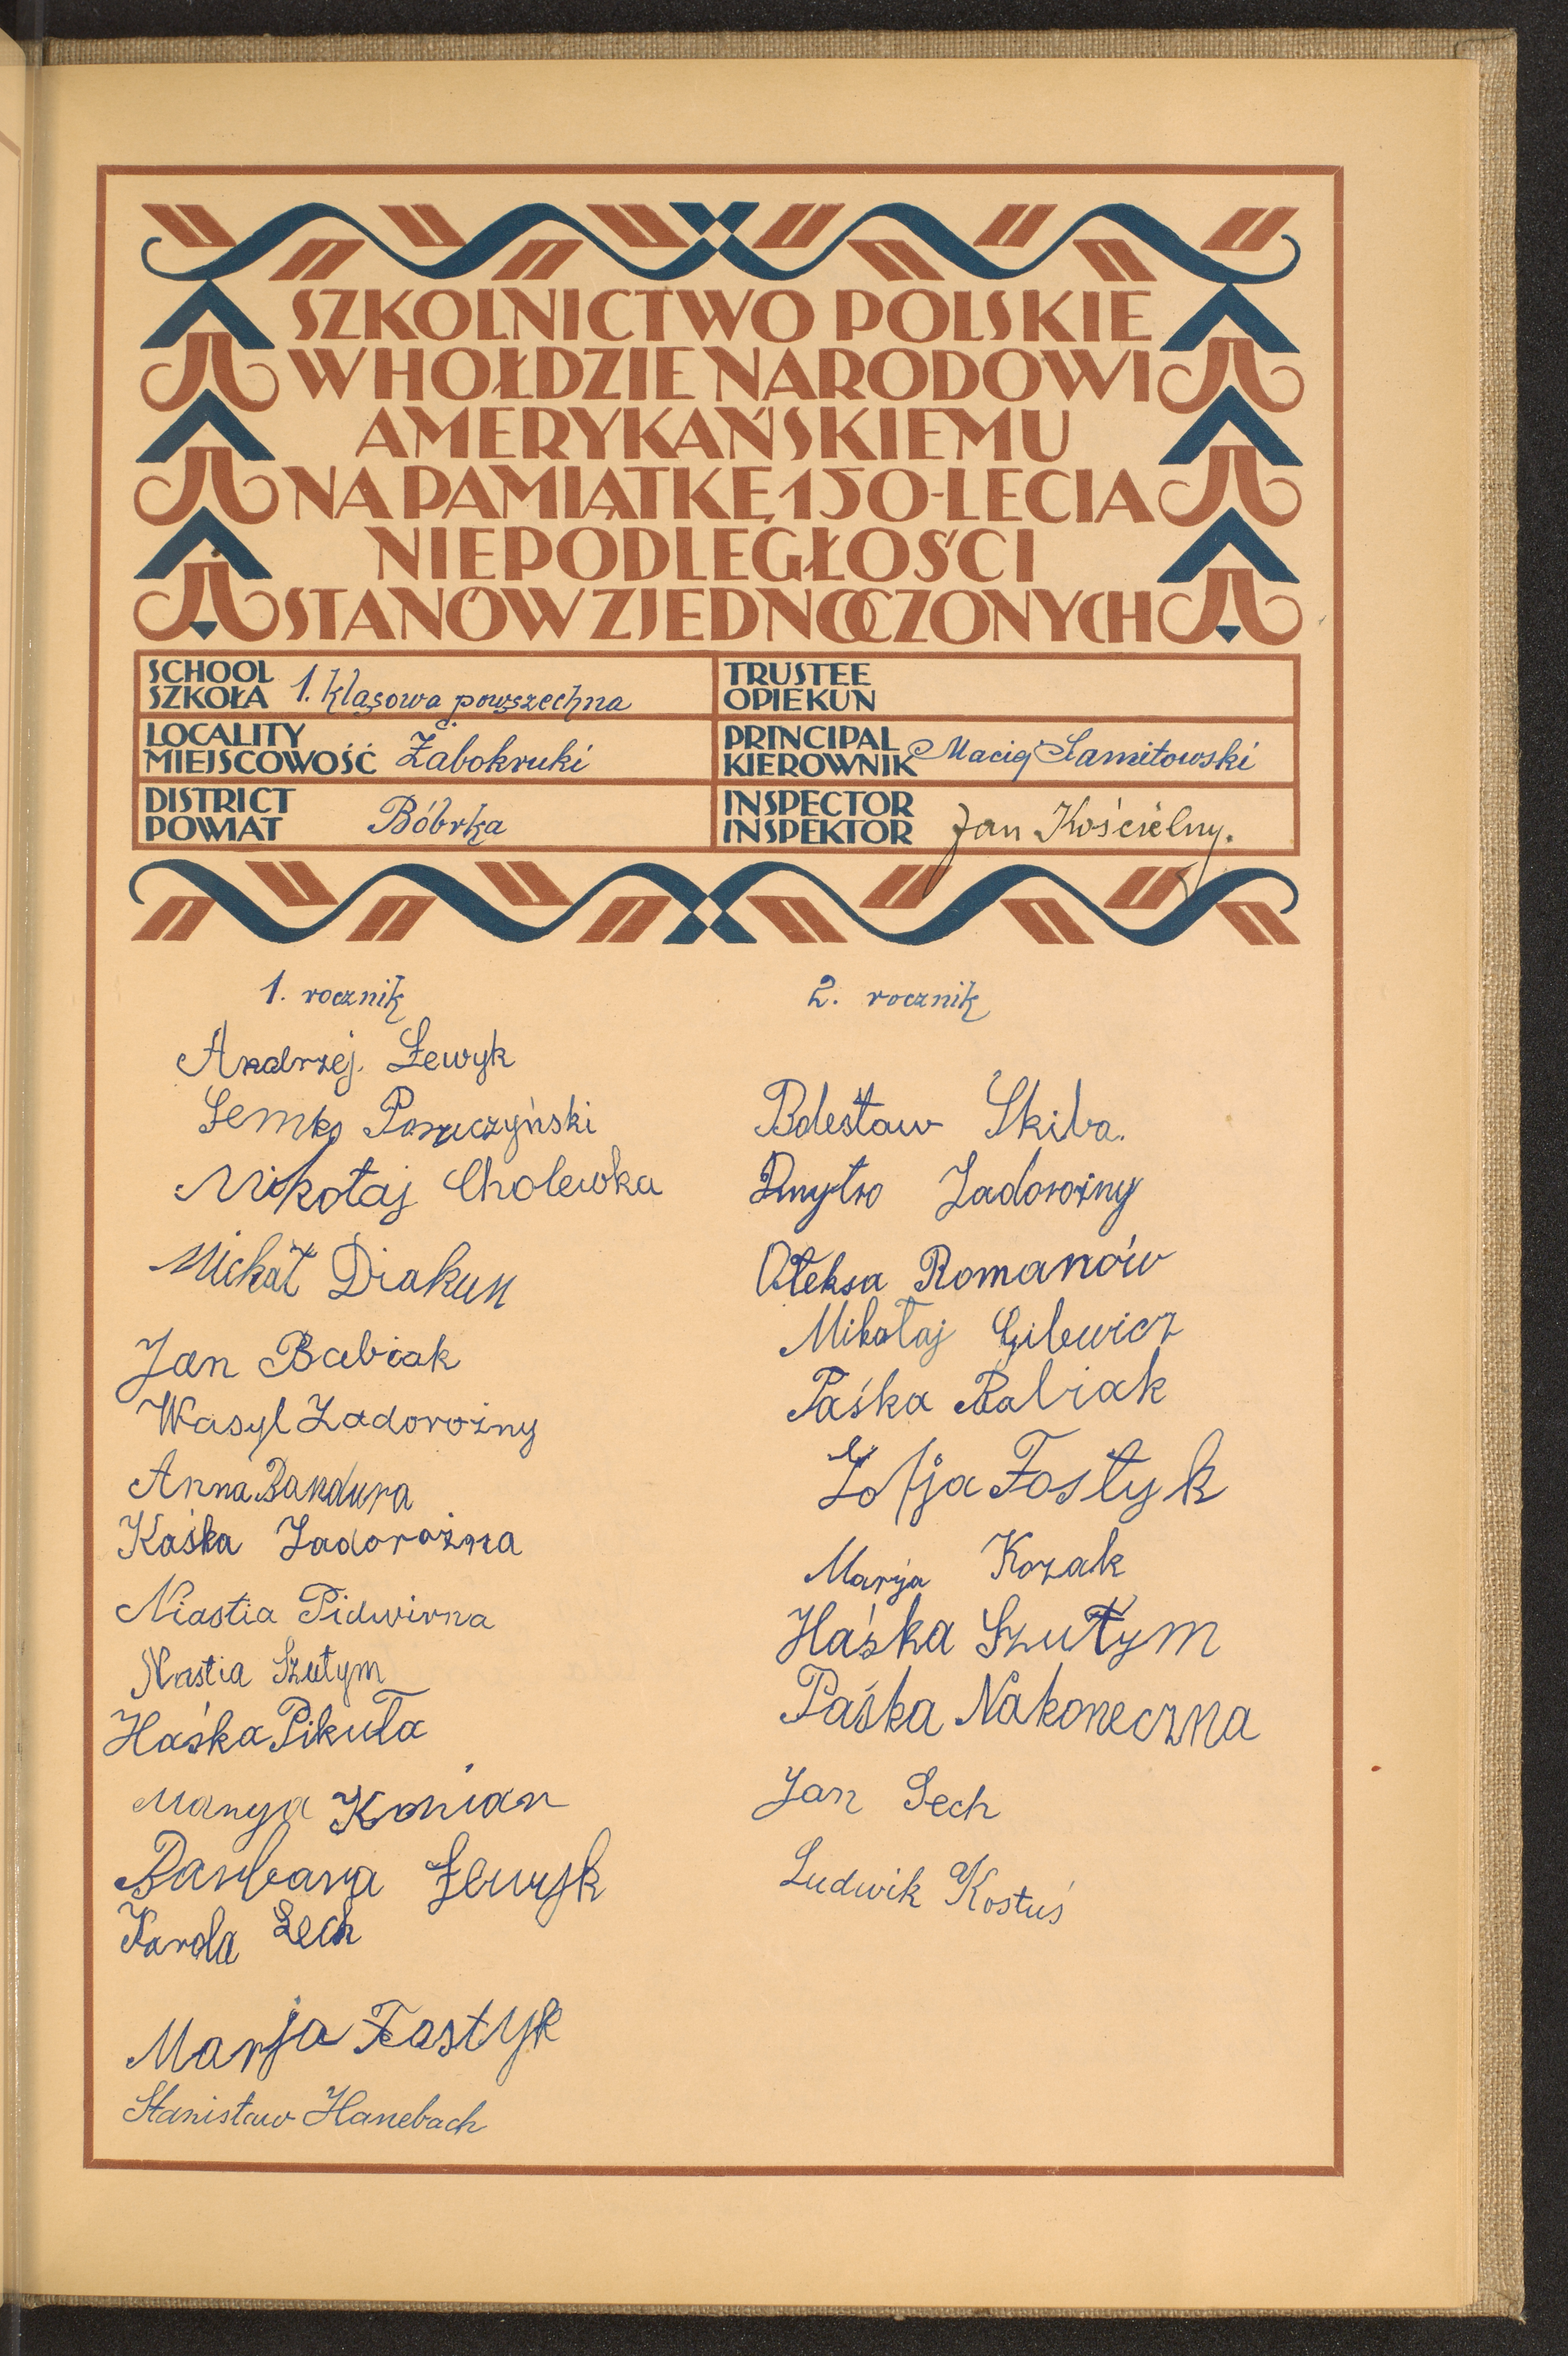 SZKOLNICTWO POLSKIE
W HOŁDZIE NARODOWI
AMERYKAŃSKIEMU
NA PAMIĄTKĘ 150-LECIA
NIEPODLEGŁOŚCI
STANÓW ZJEDNOCZONYCH
SCHOOL
SZKOŁA 1. klasowa powszechna
TRUSTEE
OPIEKUN
LOCALITY
MIEJSCOWOŚĆ Żabokruki
PRINCIPAL
KIEROWNIK Maciej
DISTRICT
POWIAT Bóbrka
INSPECTOR
INSPEKTOR Jan Kościelny.
1. rocznik
Andrzej Łewyk
Semko
Mikołaj Cholewka
Michał Diakun
Jan Babiak
Wasyl Zadorożny
Anna Bandura
Kaśka Zadorożna
Niastia Pidwirna
Nastia Szutym
Haśka Pikuła
Marya Konian
Barbara Łewyk
Karola Lech
Marja Fostyk
Stanisław Hanebach
2. rocznik
Bolesław Skiba.
Dmytro Zadorożny
Ołeksa Romanów
Mikołaj Gilewicz
Paśka Babiak
Zofja Fostyk
Marja Kozak
Haśka Szutym
Paśka Nakoneczna
Jan Lech
Ludwik Kostuś